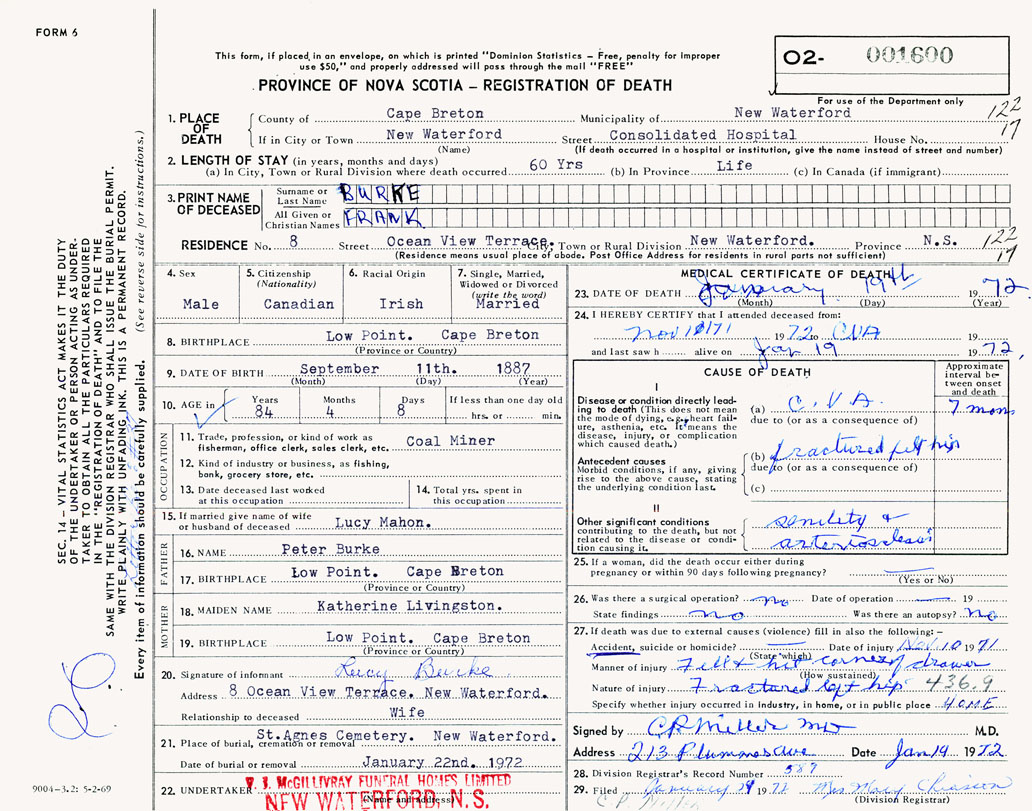 FORM 6
This form, if placed in an envelope, on which is printed "Dominion Statistics – Free, penalty for improper
use $50," and properly addressed will pass through the mail "FREE"
PROVINCE OF NOVA SCOTIA – REGISTRATION OF DEATH
O2- 001600
For use of the Department only
122
17
1. PLACE OF DEATH
County of Cape Breton Municipality of New Waterford
If in City or Town New Waterford Street Consolidated Hospital House No.
(Name) (If death occurred in a hospital or institution, give the name instead of street and number)
2. LENGTH OF STAY (in years, months and days)
(a) In City, Town or Rural Division where death occurred 60 Yrs (b) In Province Life (c) In Canada (if immigrant)
3. PRINT NAME OF DECEASED
Surname or Last Name BURKE
All Given or Christian Names FRANK
RESIDENCE No. 8 Street Ocean View Terrace. City, Town or Rural Division New Waterford. Province N.S.
122
17
(Residence means usual place of abode. Post Office Address for residents in rural parts not sufficient)
4. Sex
Male
5. Citizenship
(Nationality)
Canadian
6. Racial Origin
Irish
7. Single, Married,
Widowed or Divorced
(write the word)
Married
8. BIRTHPLACE Low Point. Cape Breton
(Province or Country)
9. DATE OF BIRTH September 11th. 1887
(Month) (Day) (Year)
10. AGE in
Years 84
Months 4
Days 8
If less than one day old
hrs. or min.
OCCUPATION
11. Trade, profession, or kind of work as
fisherman, office clerk, sales clerk, etc. Coal Miner
12. Kind of industry or business, as fishing,
bank, grocery store, etc.
13. Date deceased last worked
at this occupation
14. Total yrs. spent in
this occupation
15. If married give name of wife
or husband of deceased Lucy Mahon.
FATHER
16. NAME Peter Burke
17. BIRTHPLACE Low Point. Cape Breton
(Province or Country)
MOTHER
18. MAIDEN NAME Katherine Livingston.
19. BIRTHPLACE Low Point. Cape Breton
(Province or Country)
20. Signature of informant Lucy Burke
Address 8 Ocean View Terrace. New Waterford.
Relationship to deceased Wife
21. Place of burial, cremation or removal St.Agnes Cemetery. New Waterford.
Date of burial or removal January 22nd. 1972
22. UNDERTAKER
(Name and address)
V. J. McGILLIVRAY FUNERAL HOMES LIMITED
NEW WATERFORD, N.S.
MEDICAL CERTIFICATE OF DEATH
23. DATE OF DEATH January 19th 1972
(Month) (Day) (Year)
24. I HEREBY CERTIFY that I attended deceased from:
Nov 10 71 1972 to CVA
and last saw h alive on Jan 19 1972,
CAUSE OF DEATH
Approximate
interval be-
tween onset
and death
I
Disease or condition directly lead-
ing to death (This does not mean
the mode of dying, e.g., heart fail-
ure, asthenia, etc. It means the
disease, injury, or complication
which caused death.)
(a) C.V.A. 7 mons
due to (or as a consequence of)
Antecedent causes
Morbid conditions, if any, giving
rise to the above cause, stating
the underlying condition last.
(b) fractured left hip
due to (or as a consequence of)
(c)
II
Other significant conditions
contributing to the death, but not
related to the disease or condi-
tion causing it.
senility &
arteriosclerosis
25. If a woman, did the death occur either during
pregnancy or within 90 days following pregnancy?
(Yes or No)
26. Was there a surgical operation? no Date of operation 19
State findings no Was there an autopsy? no
27. If death was due to external causes (violence) fill in also the following:–
Accident, suicide or homicide? Date of injury Nov. 10 1971
(State which)
Manner of injury Fell & hit corner of drawer
(How sustained)
Nature of injury Fractured left hip 436.9
Specify whether injury occurred in industry, in home, or in public place HOME
Signed by C.P. Miller MD M.D.
Address 213 Plummer Ave Date Jan 19 1972
28. Division Registrar's Record Number 589
29. Filed January 19 1972 Mrs Mary Chiasson
(Division Registrar)
SEC. 14 – VITAL STATISTICS ACT MAKES IT THE DUTY
OF THE UNDERTAKER OR PERSON ACTING AS UNDER-
TAKER TO OBTAIN ALL THE PARTICULARS REQUIRED
IN THE "REGISTRATION OF DEATH" AND TO FILE THE
SAME WITH THE DIVISION REGISTRAR WHO SHALL ISSUE THE BURIAL PERMIT.
WRITE PLAINLY WITH UNFADING INK. THIS IS A PERMANENT RECORD.
Every item of information should be carefully supplied. (See reverse side for instructions.)
9004-3.2: 5-2-69